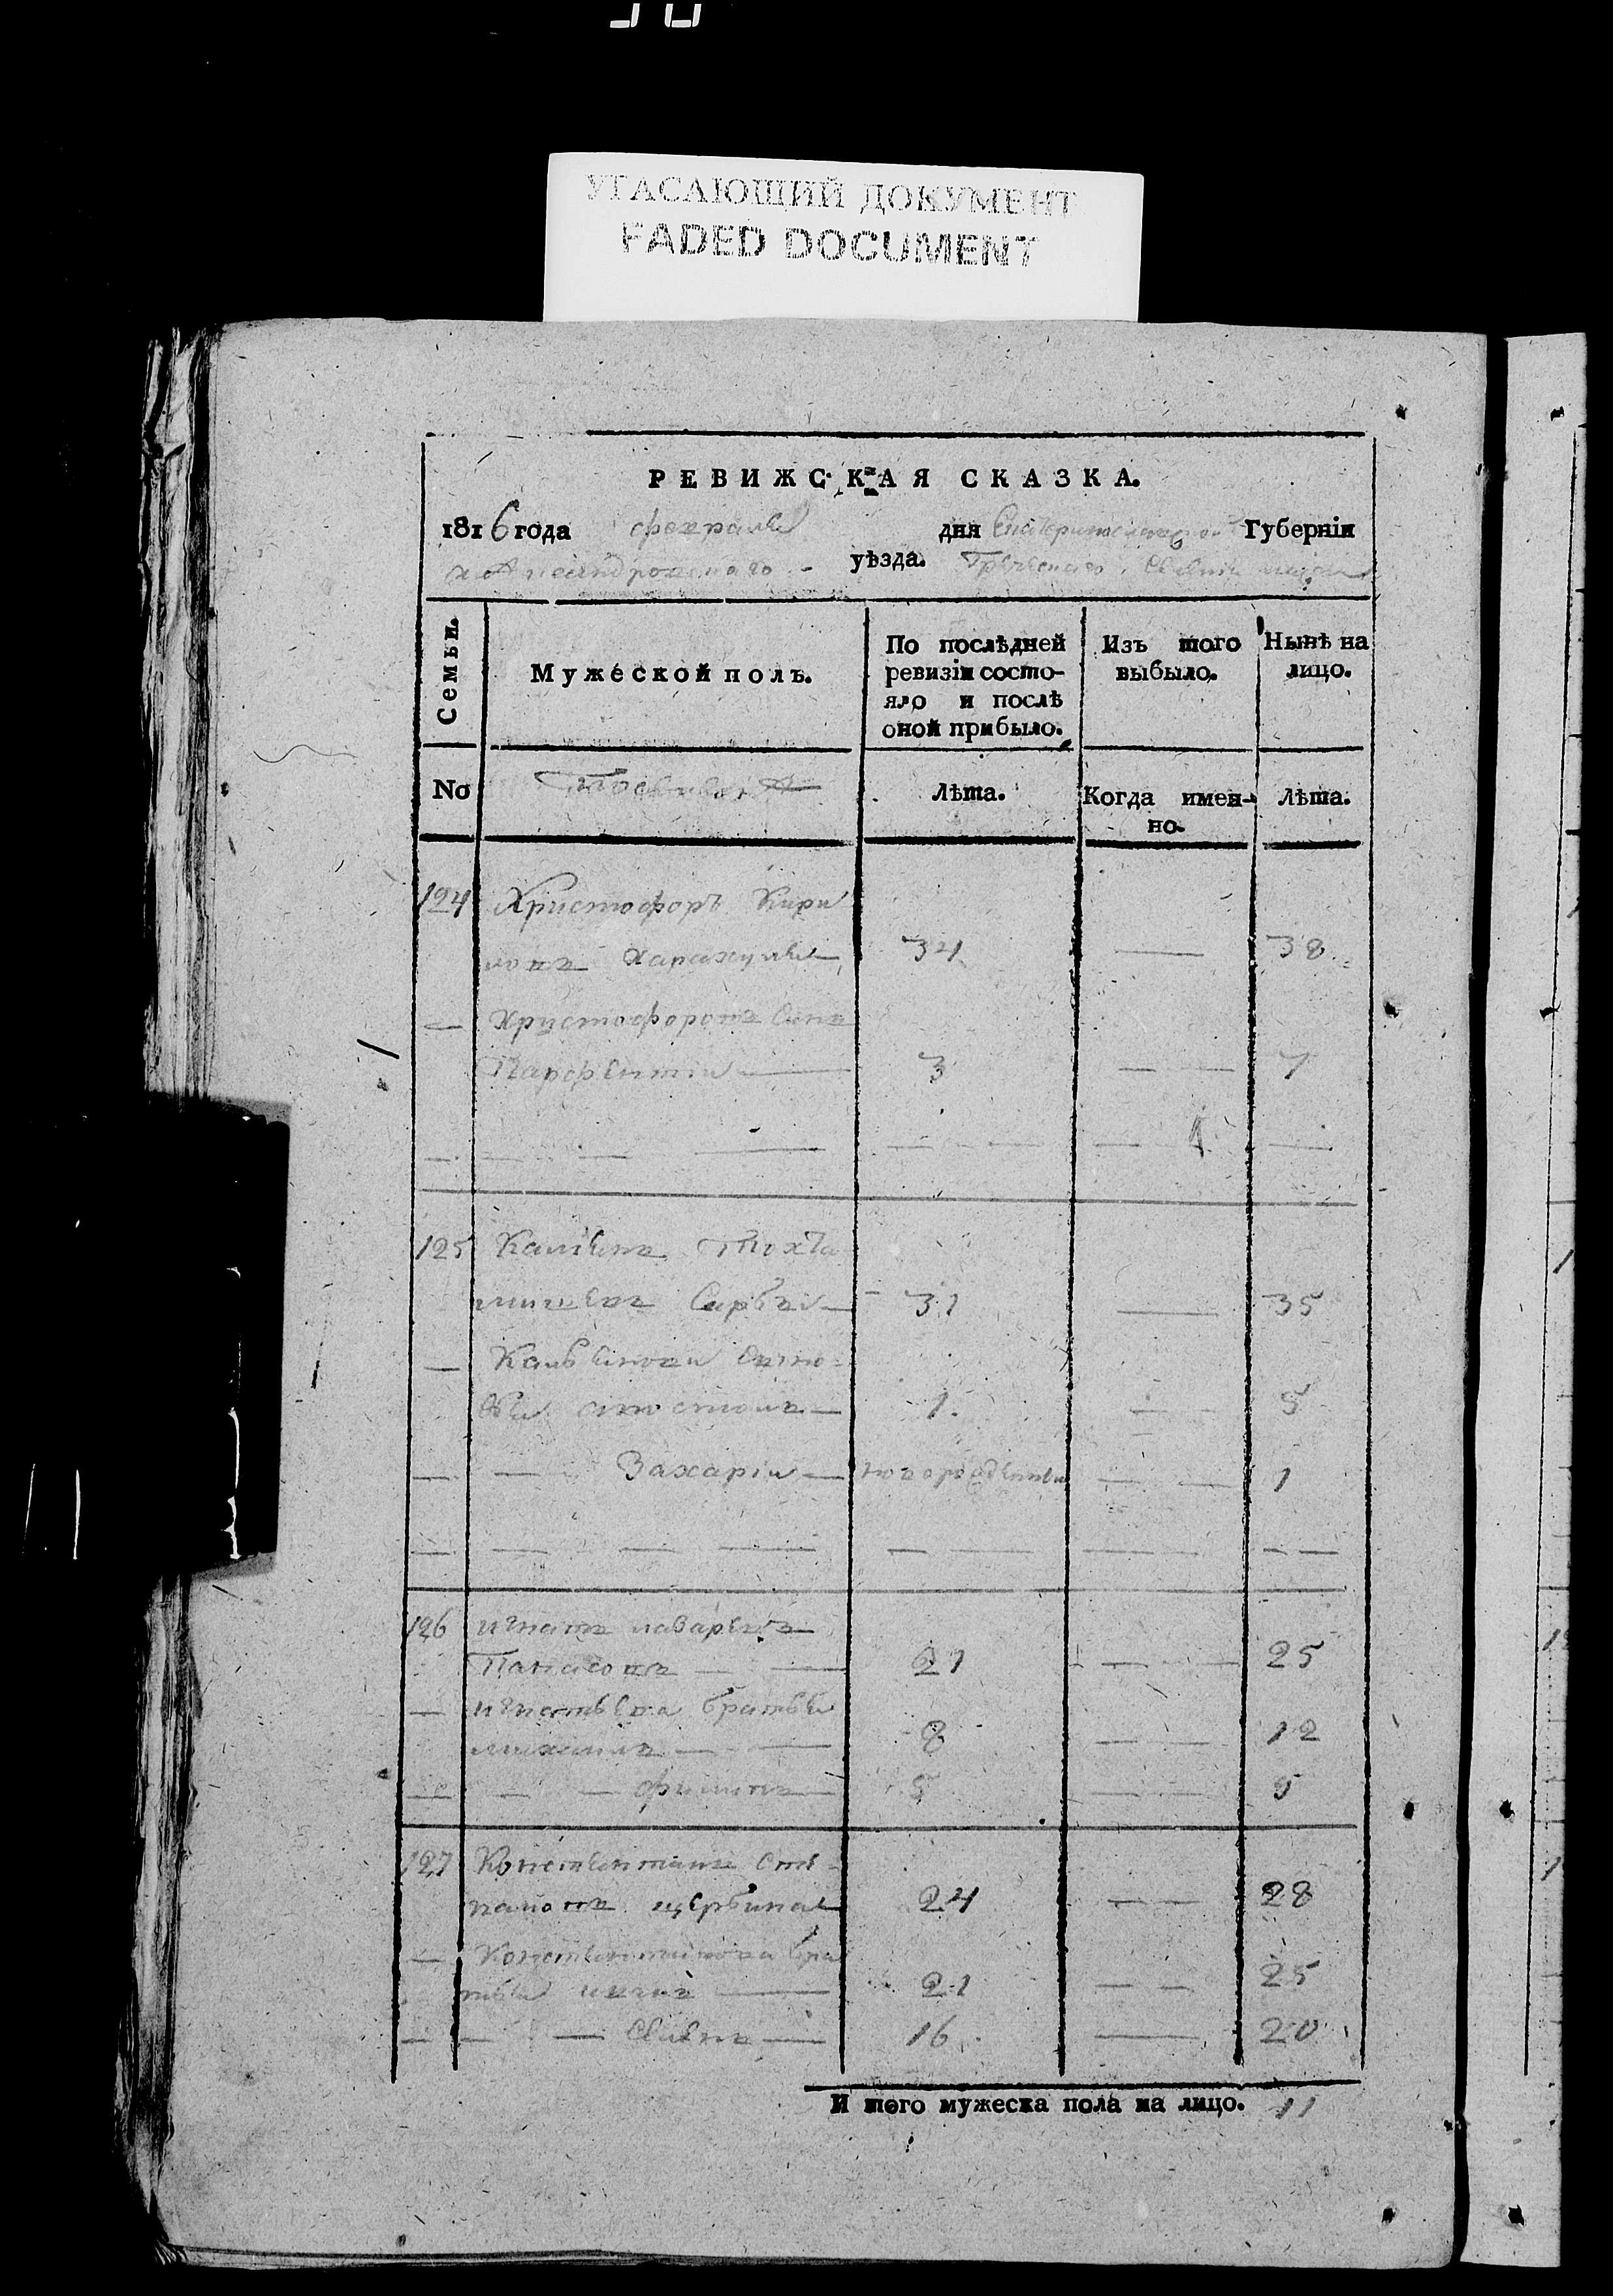 УГАСАЮЩИЙ ДОКУМЕНТ
FADED DOCUMENT
РЕВИЖСКАЯ СКАЗКА.
1816 года февраля дня Екатеринославской Губерніи
Александровскаго уѣзда. Греческаго
Семьи. Мужеской полъ. По послѣдней ревизіи состояло и послѣ оной прибыло. Изъ того выбыло. Нынѣ на лицо.
No Лѣта. Когда именно. Лѣта.
124 Христофоръ Кири
ловъ Харахулы 34 — 38
— Христофоровъ Синъ
Парфентій — 3 — — 7
125 Тохта
мишевъ Сарбей — 31 — 35
—
1. — 5
— — Захарій — новорожденъ — — 1
126 Игнатъ Лазаревъ
Панасовъ — — 21 — — 25
— Игнатьева братья
Михаилъ — — 8 — — 12
— — — Филипъ — 5 — — 9
127 Константинъ Сте
пановъ Щербина 24 — — 28
— Константинова бра
тья — 21 — — 25
— — — Савва — 16 — 20
И того мужеска пола на лицо. 11